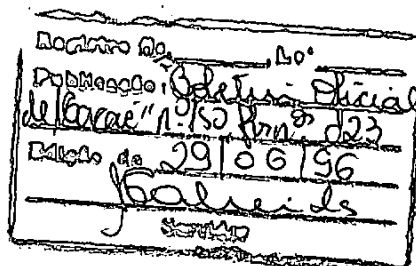 Registro Nº ______ Lº ______
Publicação: Boletim Oficial
de Macaé" nº 150
Edição de 29/06/96
Servidor